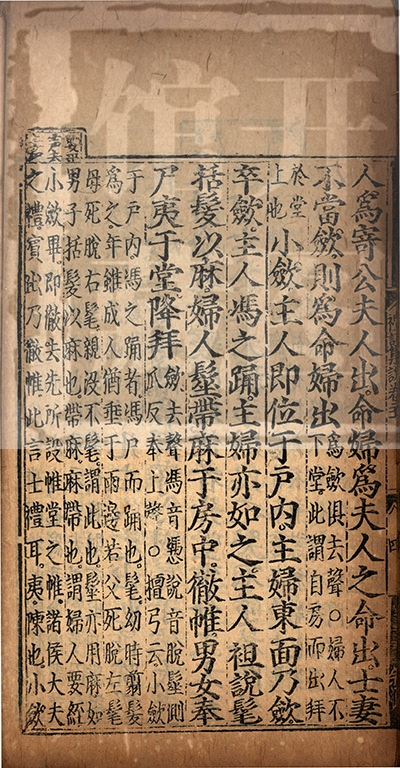 人爲寄公夫人出命婦爲夫人之命出士妻
不當斂則爲命婦出
爲斂俱去聲○婦人不
下堂此謂自房而出拜
於堂
上也
小斂主人即位于戶內主婦東面乃斂
卒斂主人馮之踊主婦亦如之主人袒說髦
括髮以麻婦人髽帶麻于房中徹帷男女奉
尸夷于堂降拜
斂去聲馮音憑說音脫髽側
瓜反奉上聲○檀弓云小斂
于戶內馮之踊者馮尸而踊也髦幼時翦髮
爲之年雖成人猶垂于兩邊若父死脫左髦
母死脫右髦親沒不髦謂此也髽亦用麻如
男子括髮以麻也帶麻麻帶也謂婦人要絰
小斂畢即徹去先所設帷堂之帷諸侯大夫
之禮賓出乃徹帷此言士禮耳夷陳也小斂